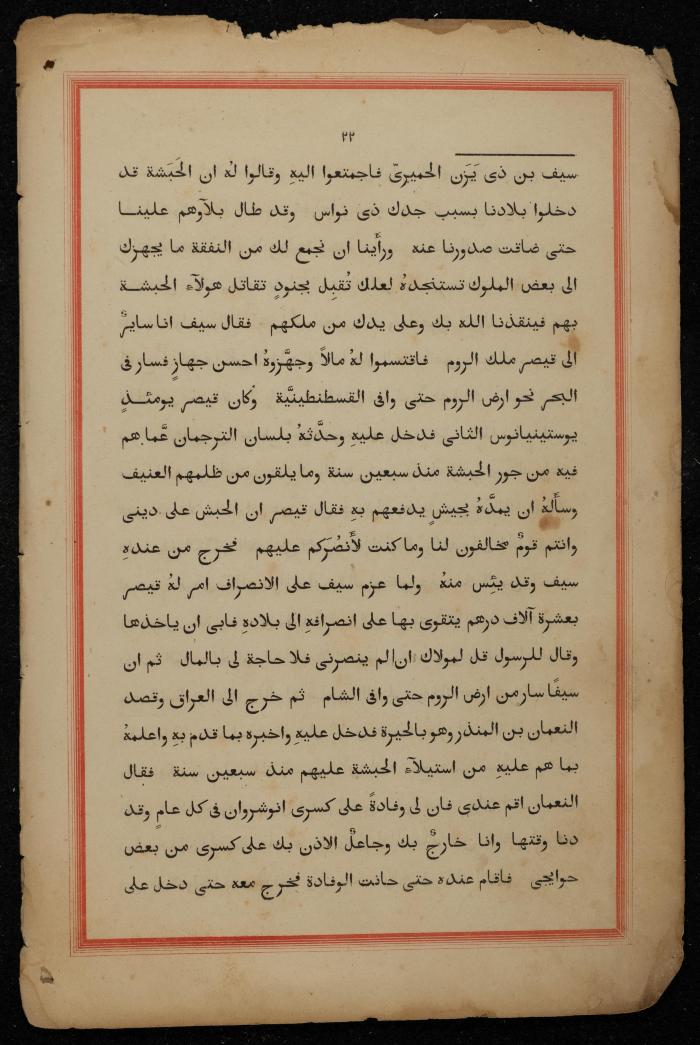 ٢٢
سيف بن ذى يَزَن الحميرىّ فاجتمعوا اليهِ وقالوا لهُ ان الحَبَشة قد
دخلوا بلادنا بسبب جدك ذى نواس وقد طال بلآوهم علينا
حتى ضاقت صدورنا عنه ورأَينا ان نجمع لك من النفقة ما يجهزك
الى بعض الملوك تستنجدهُ لعلك تُقبِل بجنودٍ تقاتل هولآء الحبشة
بهم فينقذنا الله بك وعلى يدك من ملكهم فقال سيف انا سايرٌ
الى قيصر ملك الروم فاقتسموا لهُ مالاً وجهَّزوهُ احسن جهازٍ فسار فى
البحر نحو ارض الروم حتى وافى القسطنطينيَّة وكان قيصر يومئذٍ
يوستينيانوس الثانى فدخل عليهِ وحدَّثهُ بلسان الترجمان عَّما هم
فيه من جور الحبشة منذ سبعين سنة وما يلقون من ظلمهم العنيف
وسأَلهُ ان يمدَّهُ بجيشٍ يدفعهم بهِ فقال قيصر ان الحبش على دينى
وانتم قومٌ مخالفون لنا وما كنت لأَنصُرَكم عليهم فخرج من عندهِ
سيف وقد يئِس منهُ ولما عزم سيف على الانصراف امر لهُ قيصر
بعشرة آلاف درهم يتقوى بها على انصرافهِ الى بلادهِ فابى ان ياخذها
وقال للرسول قل لمولاك ان لم ينصرنى فلا حاجة لى بالمال ثم ان
سيفًا سار من ارض الروم حتى وافى الشام ثم خرج الى العراق وقصد
النعمان بن المنذر وهو بالحيرة فدخل عليهِ واخبره بما قدم بهِ واعلمهُ
بما هم عليهِ من استيلآء الحبشة عليهم منذ سبعين سنة فقال
النعمان اقم عندى فان لى وفادةً على كسرى انوشروان فى كل عامٍ وقد
دنا وقتها وانا خارجٌ بك وجاعلٌ الاذن بك على كسرى من بعض
حوايجى فاقام عنده حتى حانت الوفادة فخرج معه حتى دخل على